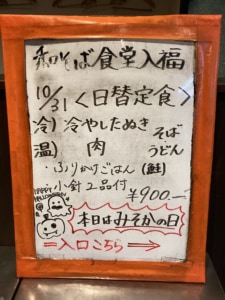 そば食堂入福
10/31＜日替定食＞
冷）冷やしたぬき そば
温）肉 うどん
・ふりかけごはん（鮭）
小針2品付 ¥900.-
HAPPY HALLOWEEN
本日はみそかの日
⇒入口こちら→